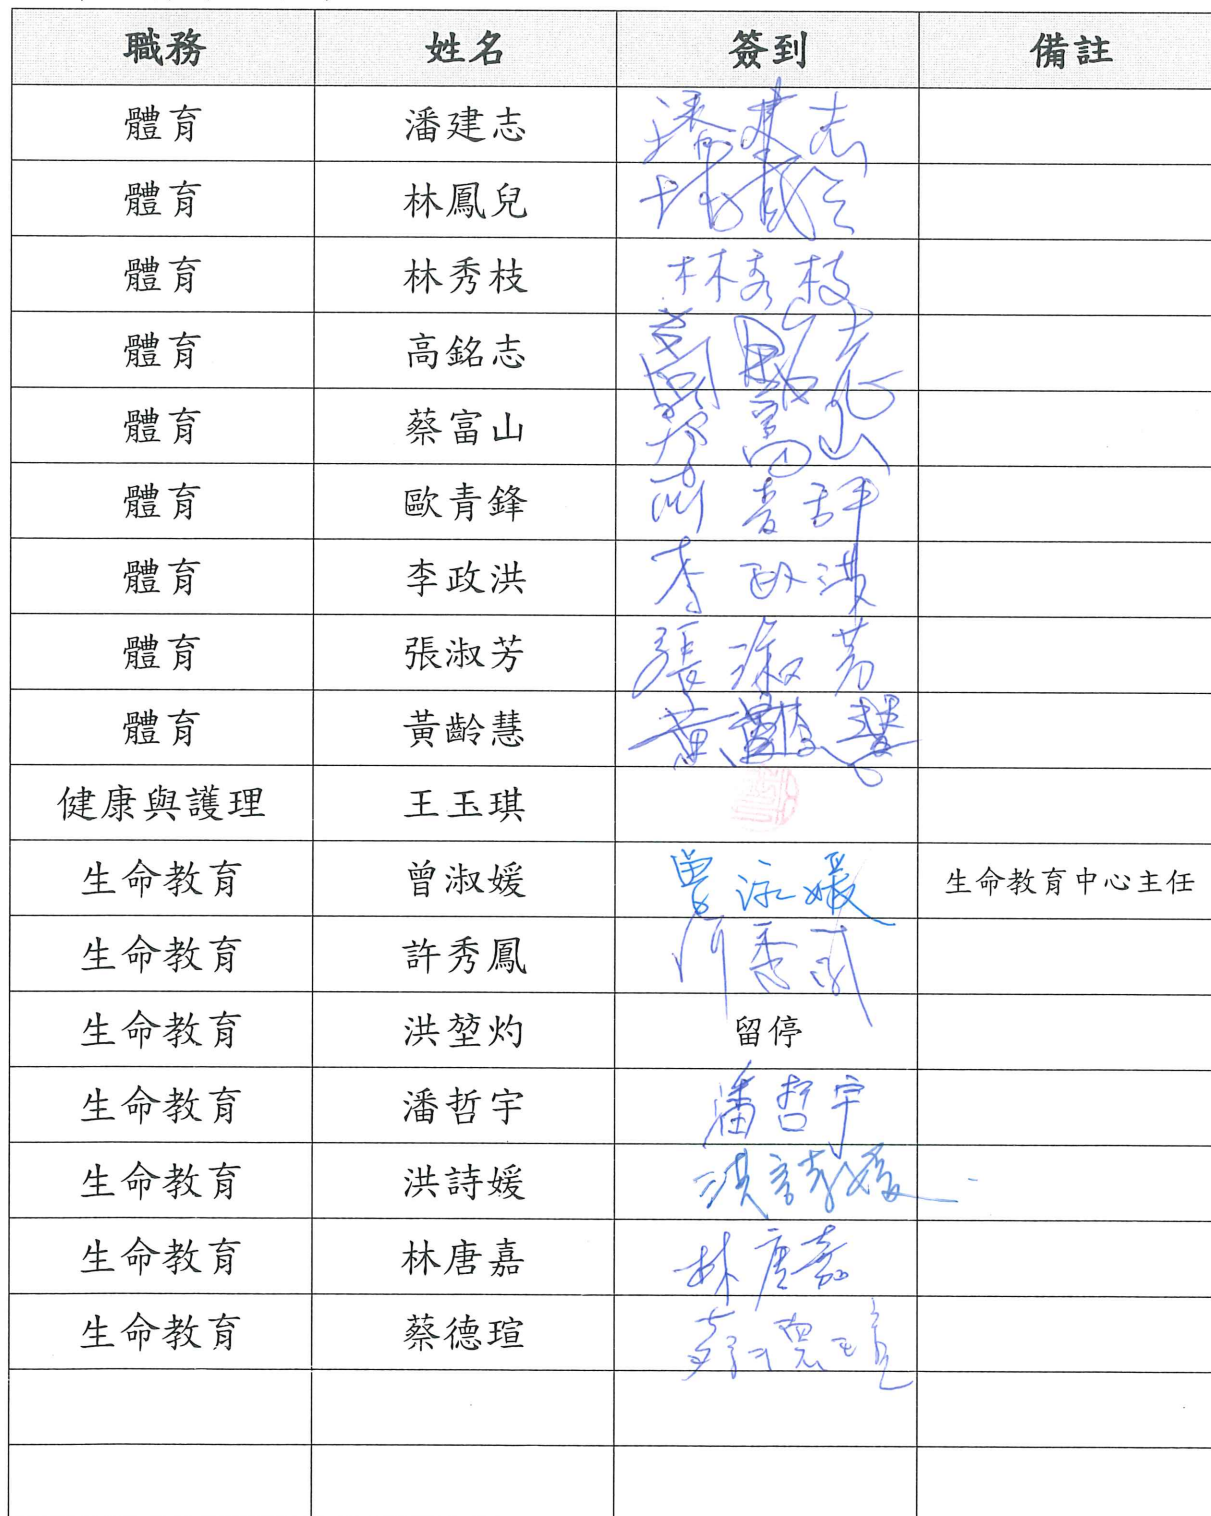 職務 姓名 簽到 備註
體育 潘建志 潘建志
體育 林鳳兒
體育 林秀枝 林秀枝
體育 高銘志 高銘志
體育 蔡富山 蔡富山
體育 歐青鋒
體育 李政洪 李政洪
體育 張淑芳 張淑芳
體育 黃齡慧 黃齡慧
健康與護理 王玉琪
生命教育 曾淑媛 曾淑媛 生命教育中心主任
生命教育 許秀鳳 許秀鳳
生命教育 洪堃灼 留停
生命教育 潘哲宇 潘哲宇
生命教育 洪詩媛 洪詩媛
生命教育 林唐嘉 林唐嘉
生命教育 蔡德瑄 蔡德瑄